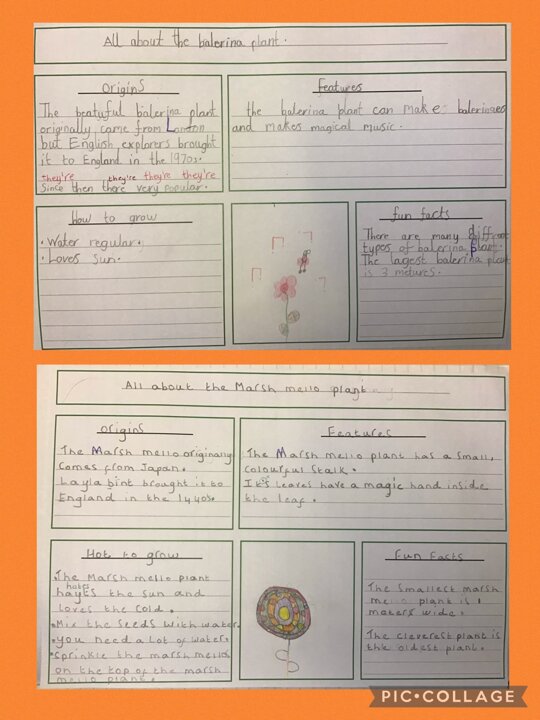 All about the balerina plant.
Origins
The beatyful balerina plant
originally came from London
but English explorers brought
it to England in the 1970s.
they're they're they're they're
Since then there very popular.
Features
the balerina plant can make balerinaes
and makes magical music.
How to grow
• Water regular.
• Loves Sun.
fun facts
There are many different
types of balerina plant.
The lagest balerina plant
is 3 metures.
All about the Marsh mello plant
Origins
The Marsh mello originally
comes from Japan.
Layla bint brought it to
England in the 1440s.
Features
The Marsh mello plant has a small,
colourful stalk.
It's leaves have a magic hand inside
the leaf.
Hot to grow
• The Marsh mello plant
hates
hayts the sun and
loves the cold.
• Mix the seeds with water.
• You need a lot of water.
• Sprinkle the marsh mello
on the top of the marsh
mello plant.
Fun Facts
The smallest marsh
mello plant is 1
meters wide.
The cleverest plant is
the oldest plant.
PIC•COLLAGE